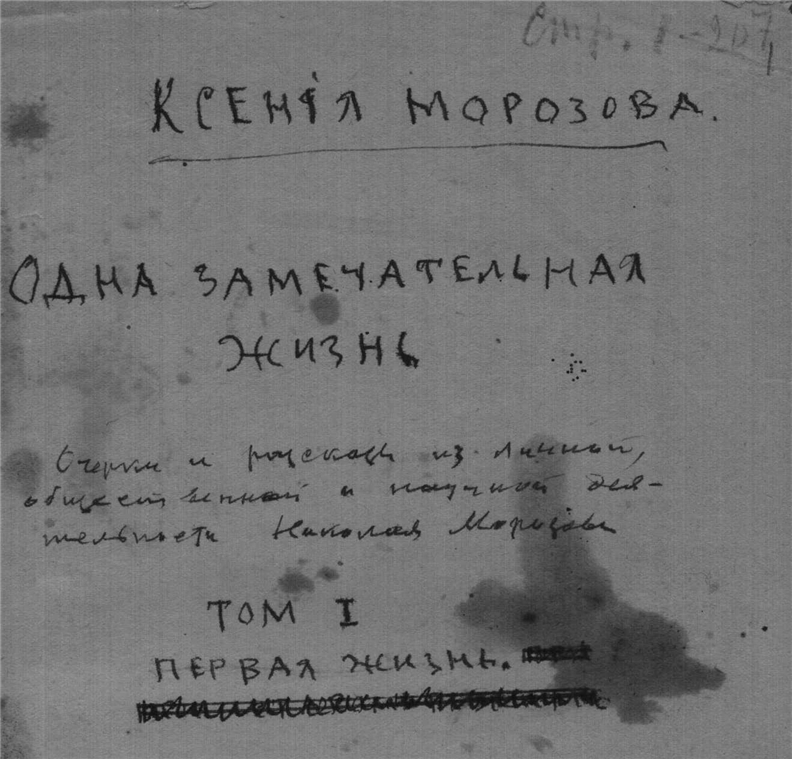 Стр. 1-207
КСЕНІЯ МОРОЗОВА.
ОДНА ЗАМЕЧАТЕЛЬНАЯ
ЖИЗНЬ
Очерки и рассказы из личной,
общественной и научной дея-
тельности Николая Морозова
ТОМ I
ПЕРВАЯ ЖИЗНЬ.